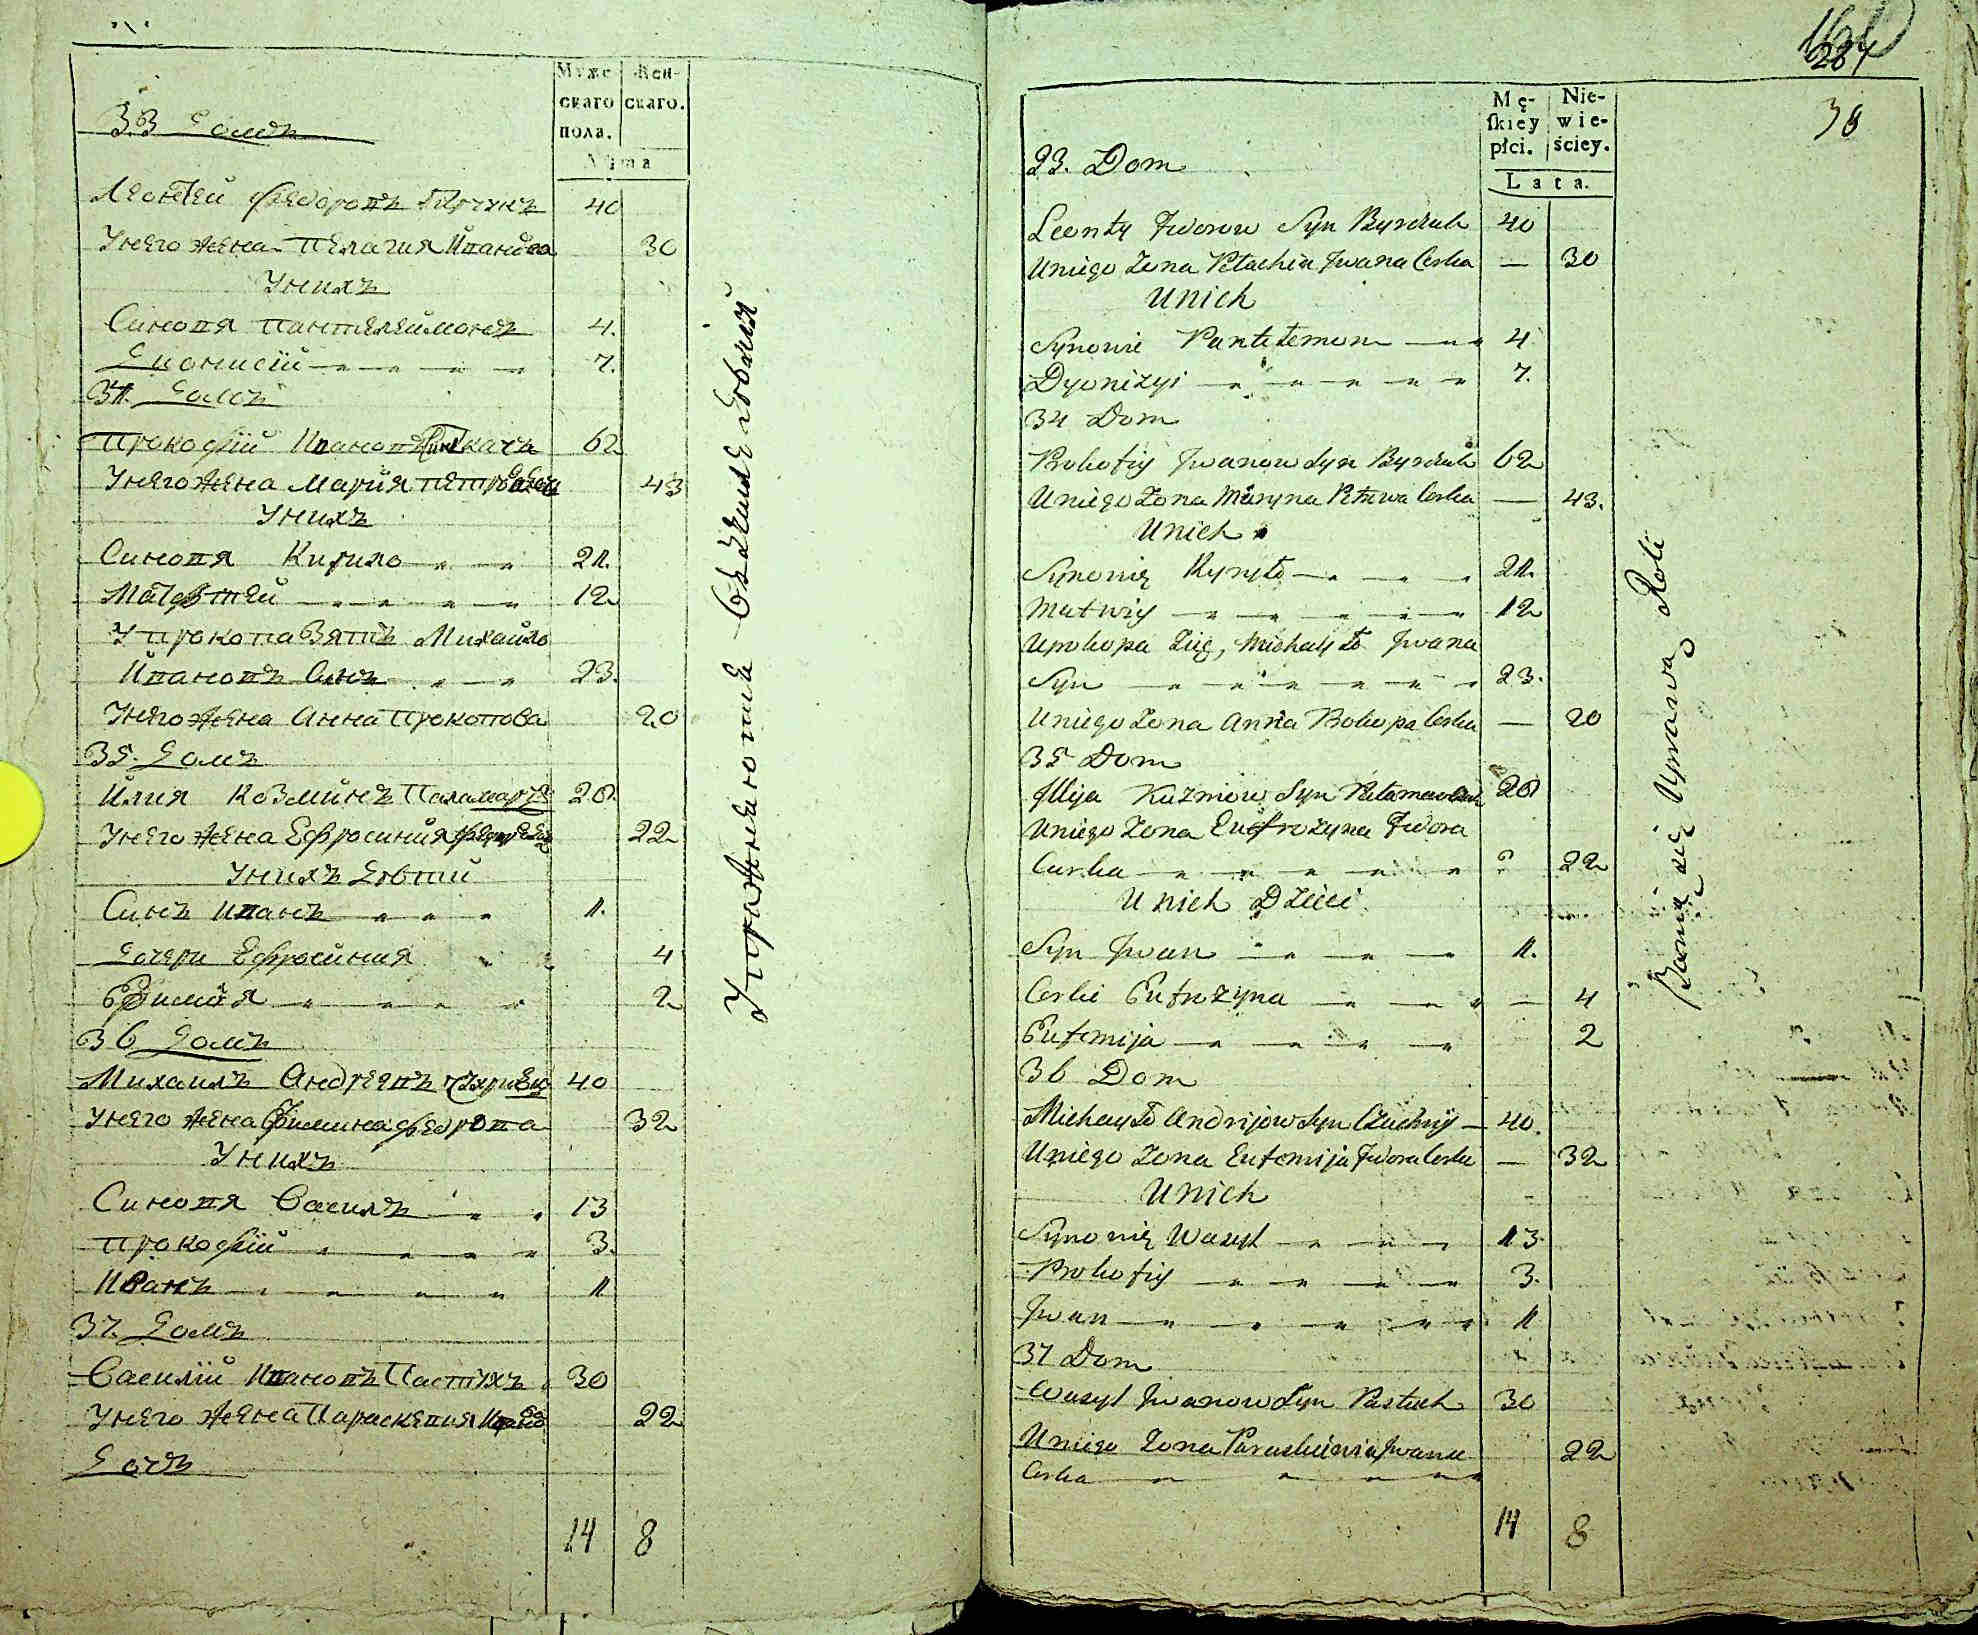 Муже
скаго
пола.
Жен-
скаго.
33 домъ
Леонтей Федоровъ 40
У него жена Пелагия Иванова 30
У нихъ
Синовя Пантелеймонъ 4.
Дионисій 7.
34. домъ
Прокофій Ивановъ 62
У него жена Мария Петрова 43
У нихъ
Синовя Кирило 21.
Матфтей 12
У Прокопа Зять Михайло
Ивановъ Синъ 23.
У него жена Анна Прокопова 20
35. домъ
Илия Козминъ Паламаръ 28.
У него жена Ефросиния 22
У нихъ дѣти
Синъ Иванъ 1.
Дочери Ефросиния 4
Ефимия 2
36 домъ
Михаилъ Андреевъ 40
У него жена 32
У нихъ
Синовя Василъ 13
Прокофій 3.
Иванъ 1
37. домъ
Василій Ивановъ Пастухъ 30
У него жена Параскевия 22
Дочъ
14 8
Упражняются въ земледѣлии
287
38
Mę-
ſkiey
płci.
Nie-
wie-
ściey.
Lata.
33. Dom
Leonty Fedorow Syn Byrczak 40
U niego Zona Pelachia Jwana Corka — 30
U nich
Synowie Pantelemon 4
Dyonizyi 7.
34 Dom
Prokofiy Jwanow Syn Byrczak 62
U niego Zona Maryna Petrowa Corka — 43.
U nich
Synowie Kyryło 21.
Matwiy 12
U Prokopa Zięć, Michayło Jwana
Syn 23.
U niego Zona Anna Prokopa Corka — 20
35 Dom
Jllija Kuzmiow Syn 28
U niego Zona Eufrozyna Fedora
Corka 22
U nich Dzieci
Syn Jwan 1.
Corki Eufrozyna — 4
Eufemija 2
36 Dom
Michayło Andrijow Syn Czuchriy — 40.
U niego Zona Eufemija Fedora Corka — 32
U nich
Synowie Wasyl 13
Prokofiy 3.
Jwan 1
37 Dom
Wasyl Jwanow Syn Pastuch 30
U niego Zona Paraskiewia Jwana 22
Corka
14 8
Bawią się Uprawą Roli